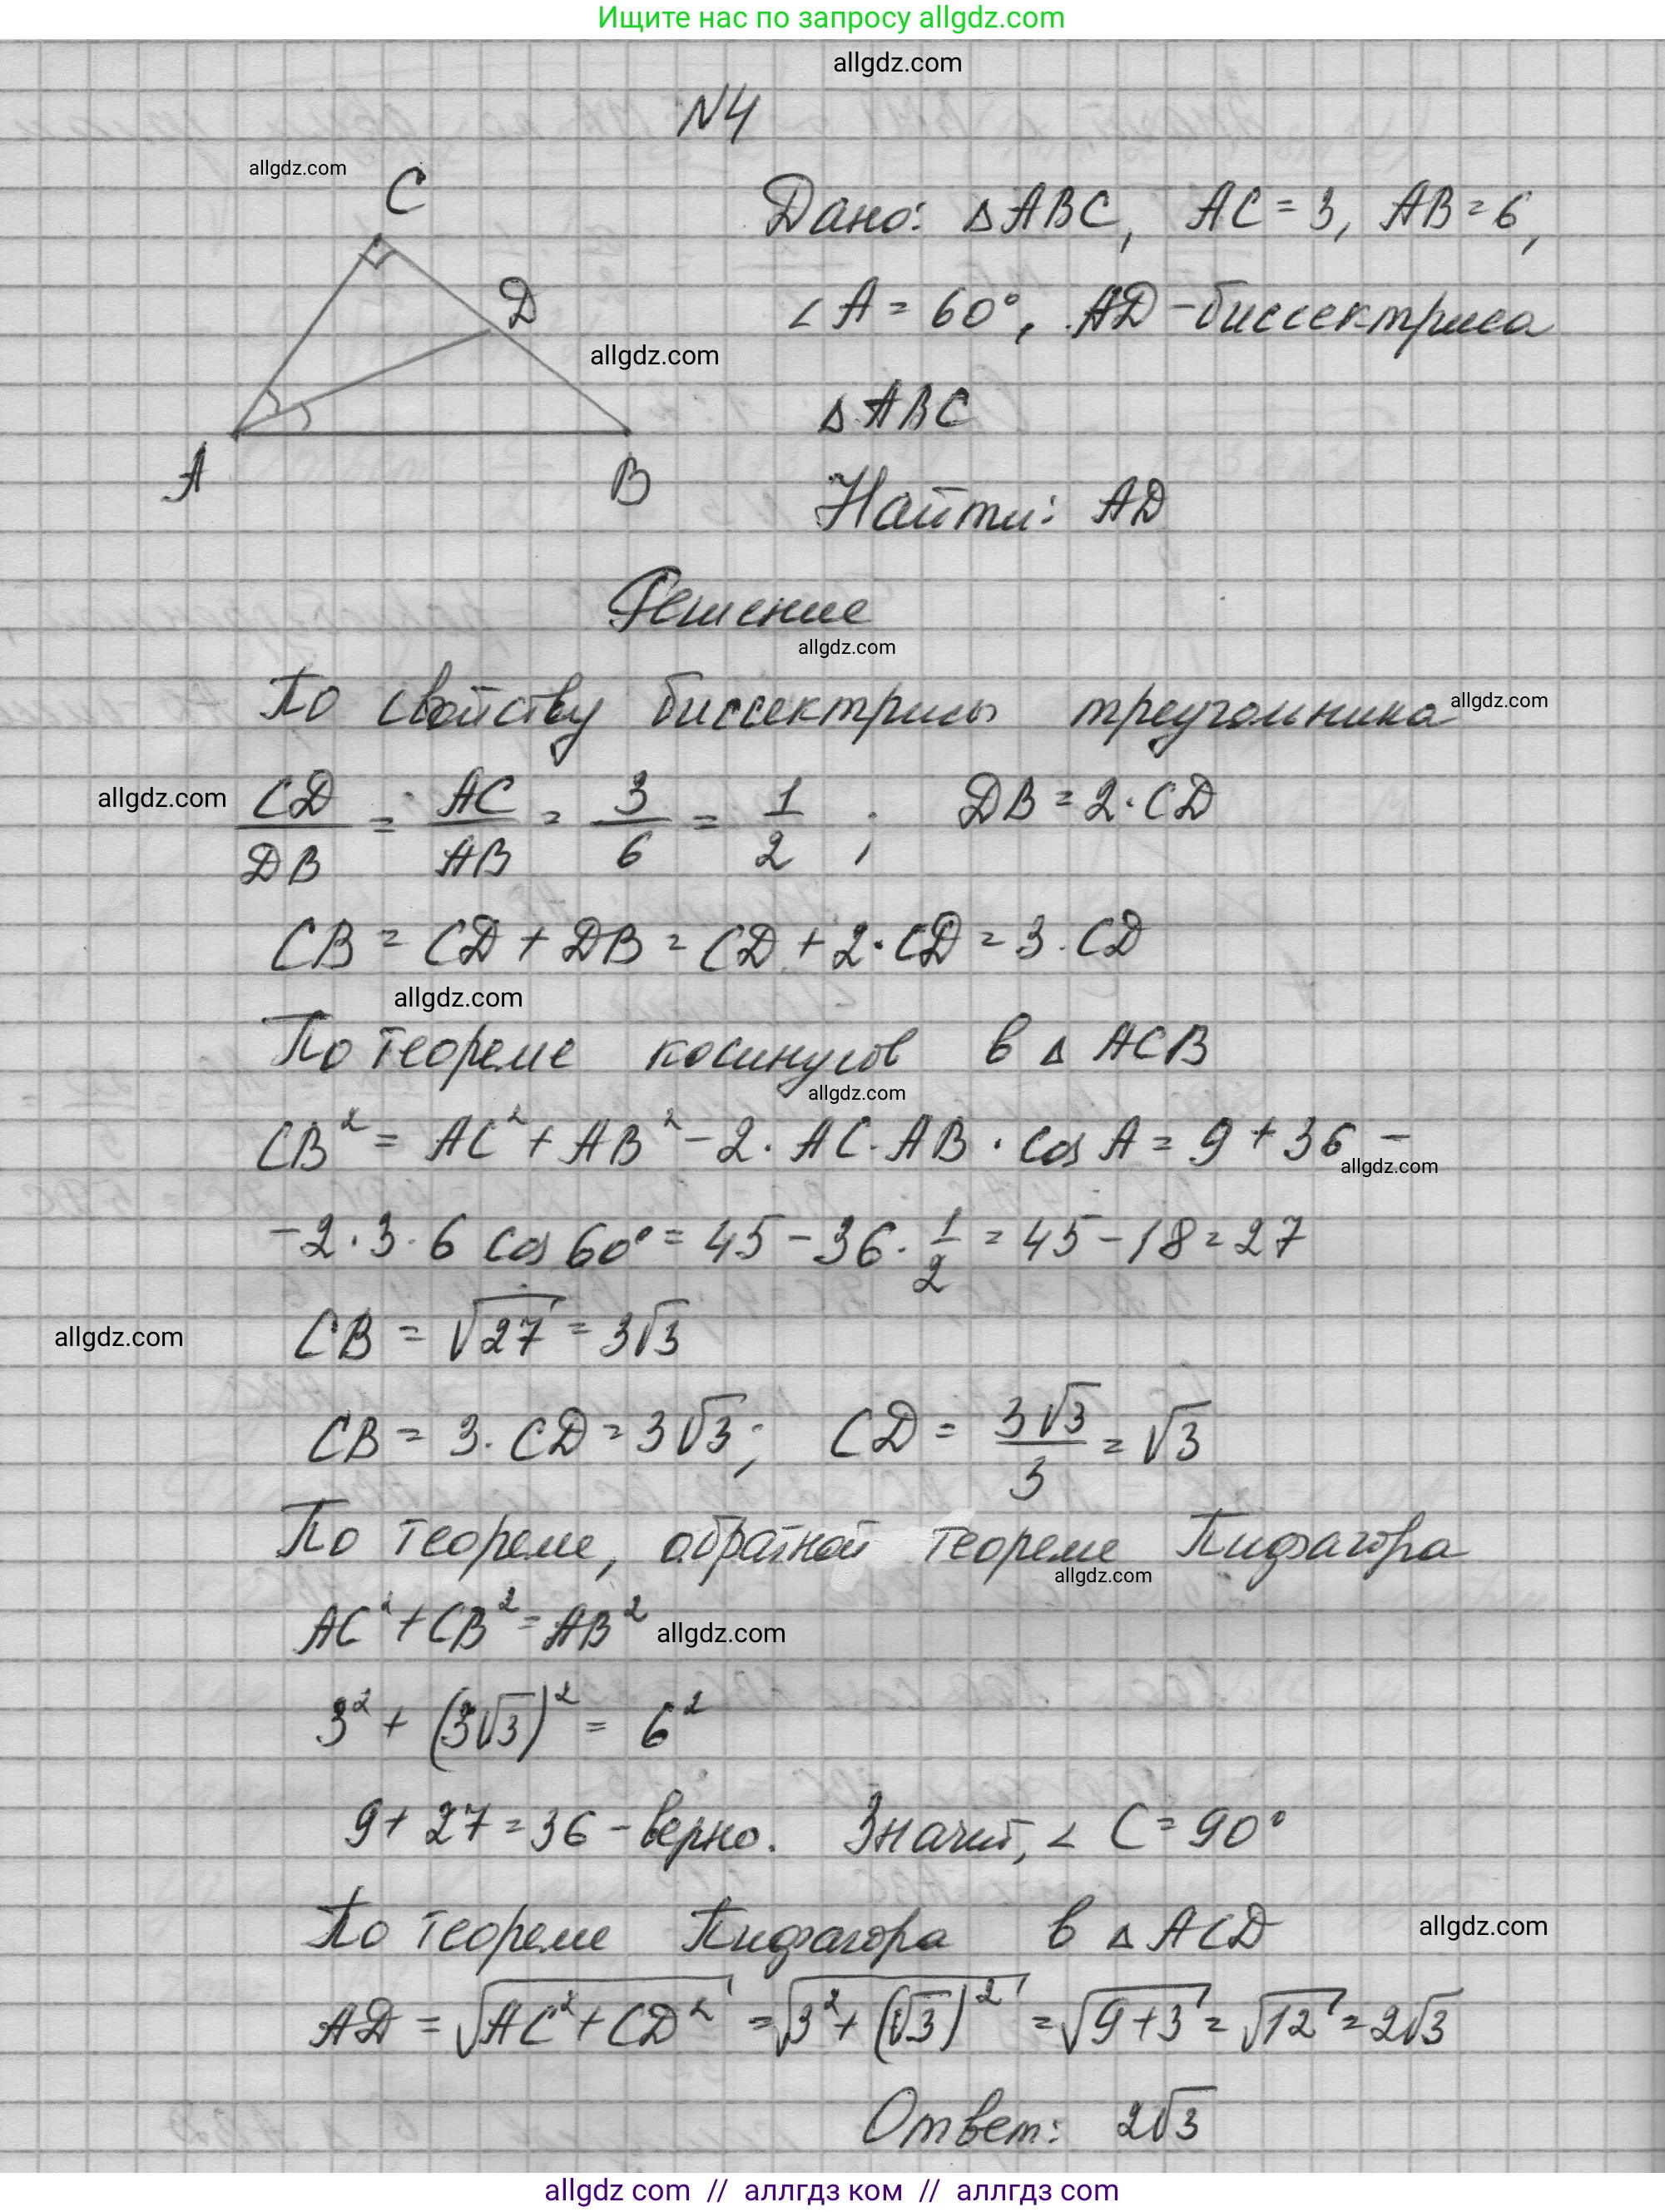 Ищите нас по запросу allgdz.com
allgdz.com
N4
allgdz.com
C
Дано: △ABC, AC = 3, AB = 6,
D
∠A = 60°, AD - биссектриса
allgdz.com
△ABC
A
B
Найти: AD
Решение
allgdz.com
По свойству биссектрисы треугольника
allgdz.com
allgdz.com
CD/DB = AC/AB = 3/6 = 1/2 ; DB = 2·CD
CB = CD + DB = CD + 2·CD = 3·CD
allgdz.com
По теореме косинусов в △ACB
allgdz.com
CB² = AC² + AB² - 2·AC·AB·cos A = 9 + 36 -
allgdz.com
-2·3·6 cos 60° = 45 - 36·1/2 = 45 - 18 = 27
allgdz.com
CB = √27 = 3√3
CB = 3·CD = 3√3; CD = 3√3/3 = √3
По теореме, обратной теореме Пифагора
allgdz.com
AC² + CB² = AB²
allgdz.com
3² + (3√3)² = 6²
9 + 27 = 36 - верно. Значит, ∠C = 90°
По теореме Пифагора в △ACD
allgdz.com
AD = √AC² + CD² = √3² + (√3)² = √9+3 = √12 = 2√3
Ответ: 2√3
allgdz com // аллгдз ком // аллгдз com